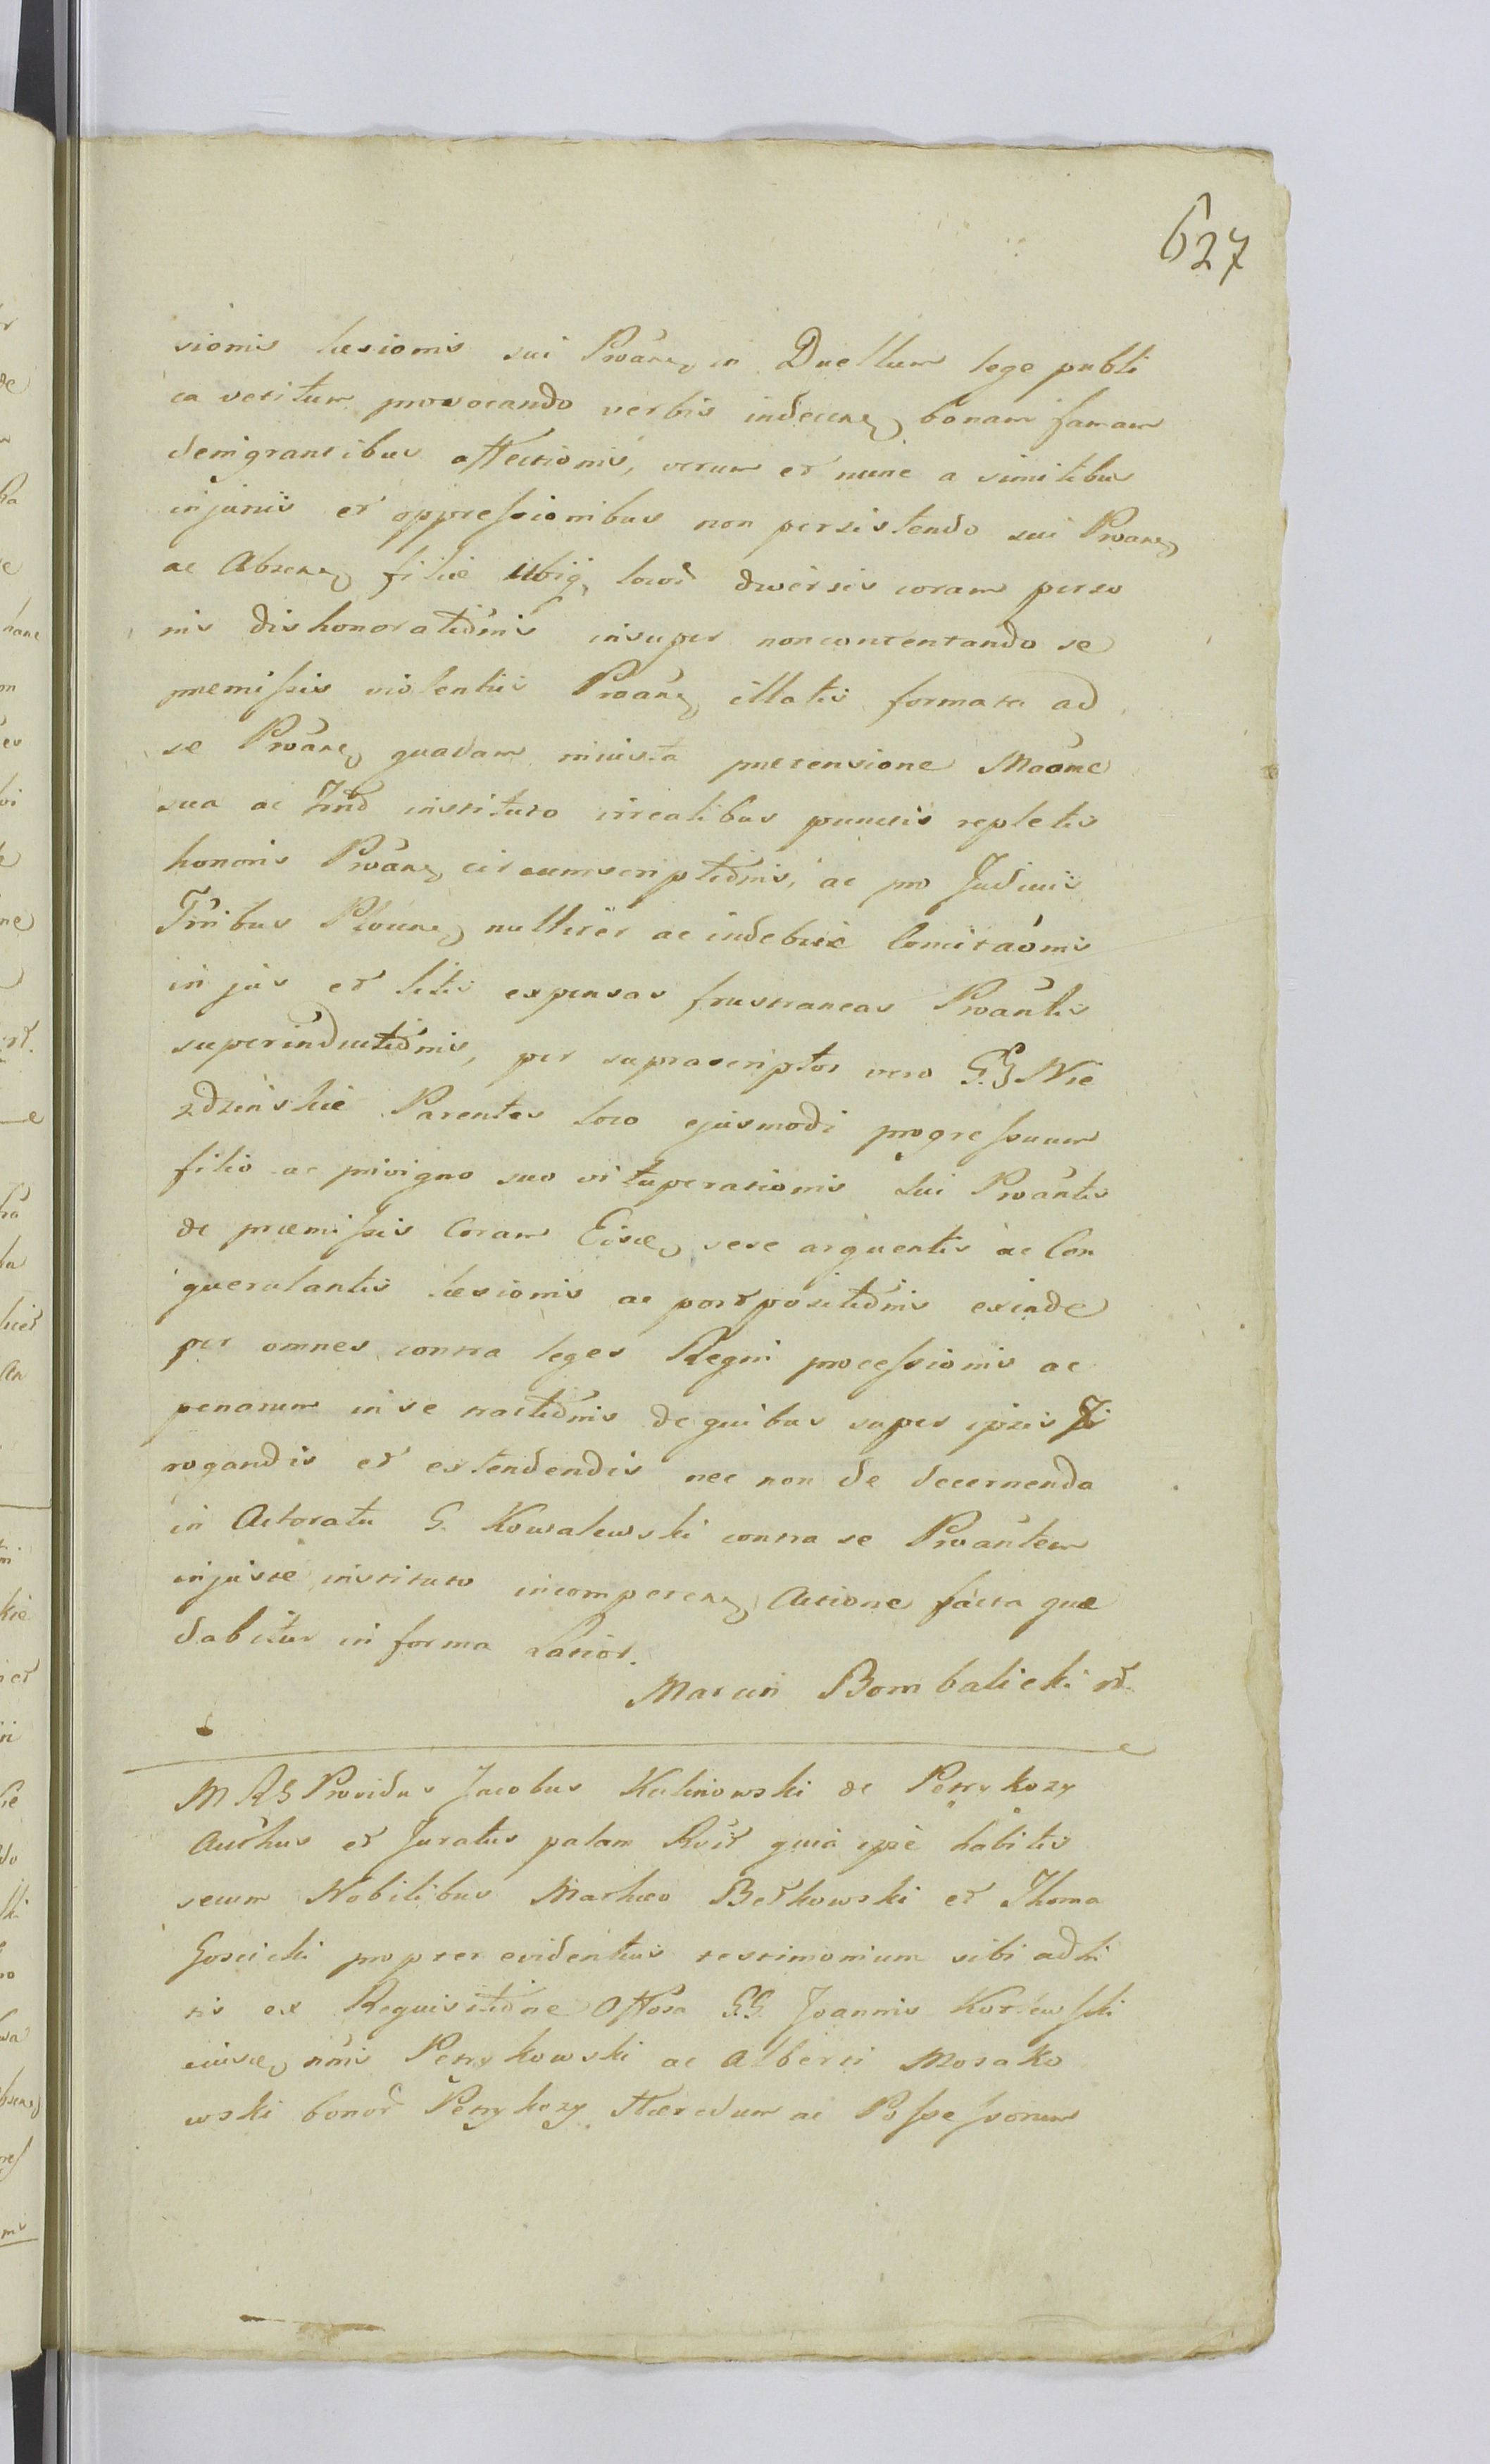 627
sionis læsionis sui Proãne, in Duellum lege publi
ca vetitum provocando verbis indecene, bonam famam
denigrantibus affectionis, verum et nunc a similibus
injuriis et oppressionibus non persistendo sui Proane,
ac Absene, filiæ ubiq, locor diversis coram perso
nis dishonoratiõnis insuper noncontentando se
premissis violentiis Proãne, illatis formata ad
se Proãne, quadam iniusta pretensione Maõne
sua ac Jnd instituto irrealibus punctis repletis
honoris Proãne, circumscriptiõnis, ac pro Judiciis
Trribus Plocene, nulliter ac indebite Comitaõnis
in jus et litis expensas frustraneas Proãntis
superinductiõnis, per suprascriptos vero GG Nie
zdzinskie Parentes loco ejusmodi progressuum
filio ac privigno suo vituperationis sui Proãntis
de præmissis Coram Eisde, sese arguentis ac Con
querulantis læsionis ac postpositiõnis exinde
per omnes contra leges Regni processionis ac
penarum in se tractiõnis de quibus super ipsis Ir
rogandis et extendendis nec non de decernenda
in Actoratu G. Kowalewski contra se Proãntem
injuste instituto incompetene, Actione facta quæ
dabitur in forma Latior.
Marcin Bombalicki
Providus Jacobus Kalinowski de Petrykozy
Authus et Juratus palam Rvit quia ipse habitis
secum Nobilibus Mathæo Betkowski et Thoma
Gosicki propter evidentius testimonium sibi adhi
tis ex Requisitiõne Offosa GG. Joannis Kortewski
eiusde, nõnis Petrykowski ac Alberti Morako
wski bonor Petrykozy Hæredum ac Possessorum